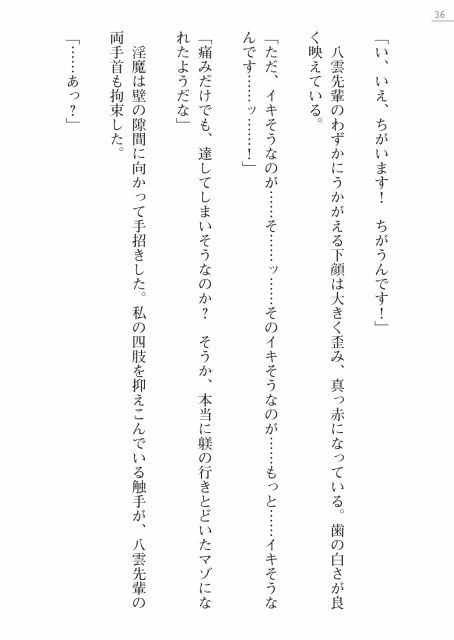 36
「い、いえ、ちがいます！　ちがうんです！」
　八雲先輩のわずかにうかがえる下顔は大きく歪み、真っ赤になっている。歯の白さが良
く映えている。
「ただ、イキそうなのが……そ……ッ……そのイキそうなのが……もっと……イキそうな
んです……ッ……！」
「痛みだけでも、達してしまいそうなのか？　そうか、本当に躾の行きとどいたマゾにな
れたようだな」
　淫魔は壁の隙間に向かって手招きした。私の四肢を抑えこんでいる触手が、八雲先輩の
両手首も拘束した。
「……あっ？」